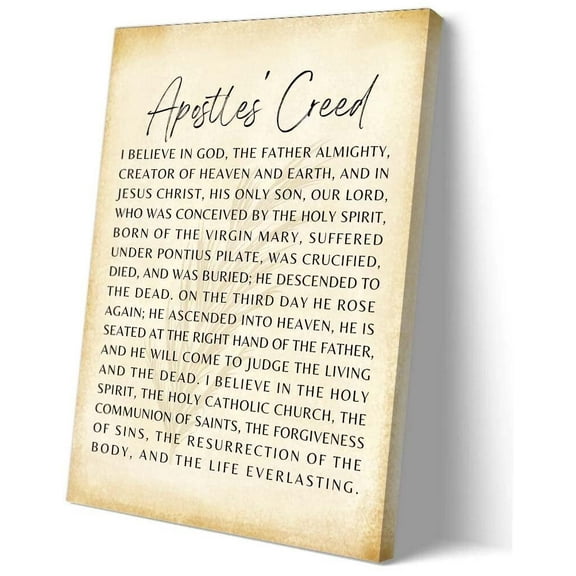 Apostles' Creed
I BELIEVE IN GOD, THE FATHER ALMIGHTY,
CREATOR OF HEAVEN AND EARTH, AND IN
JESUS CHRIST, HIS ONLY SON, OUR LORD,
WHO WAS CONCEIVED BY THE HOLY SPIRIT,
BORN OF THE VIRGIN MARY, SUFFERED
UNDER PONTIUS PILATE, WAS CRUCIFIED,
DIED, AND WAS BURIED; HE DESCENDED TO
THE DEAD. ON THE THIRD DAY HE ROSE
AGAIN; HE ASCENDED INTO HEAVEN, HE IS
SEATED AT THE RIGHT HAND OF THE FATHER,
AND HE WILL COME TO JUDGE THE LIVING
AND THE DEAD. I BELIEVE IN THE HOLY
SPIRIT, THE HOLY CATHOLIC CHURCH, THE
COMMUNION OF SAINTS, THE FORGIVENESS
OF SINS, THE RESURRECTION OF THE
BODY, AND THE LIFE EVERLASTING.